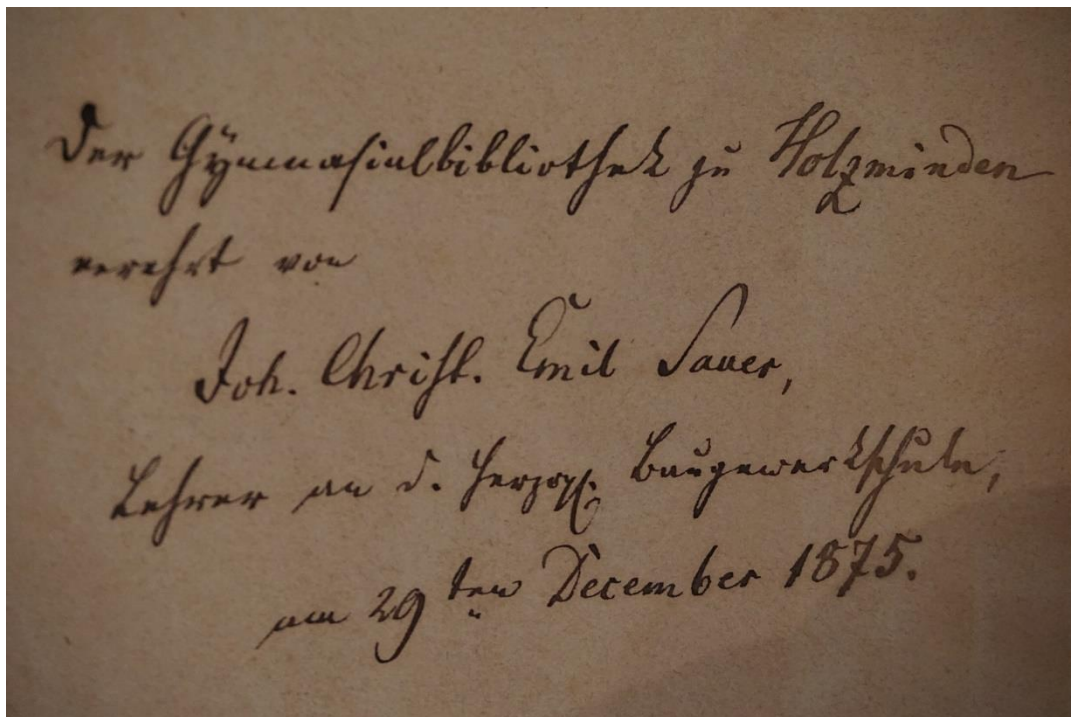 Der Gÿmnasialbibliothek zu Holzminden
verehrt von
Joh. Christ. Emil Sauer,
Lehrer an d. herzogl. Baugewerkschule,
am 29ten December 1875.